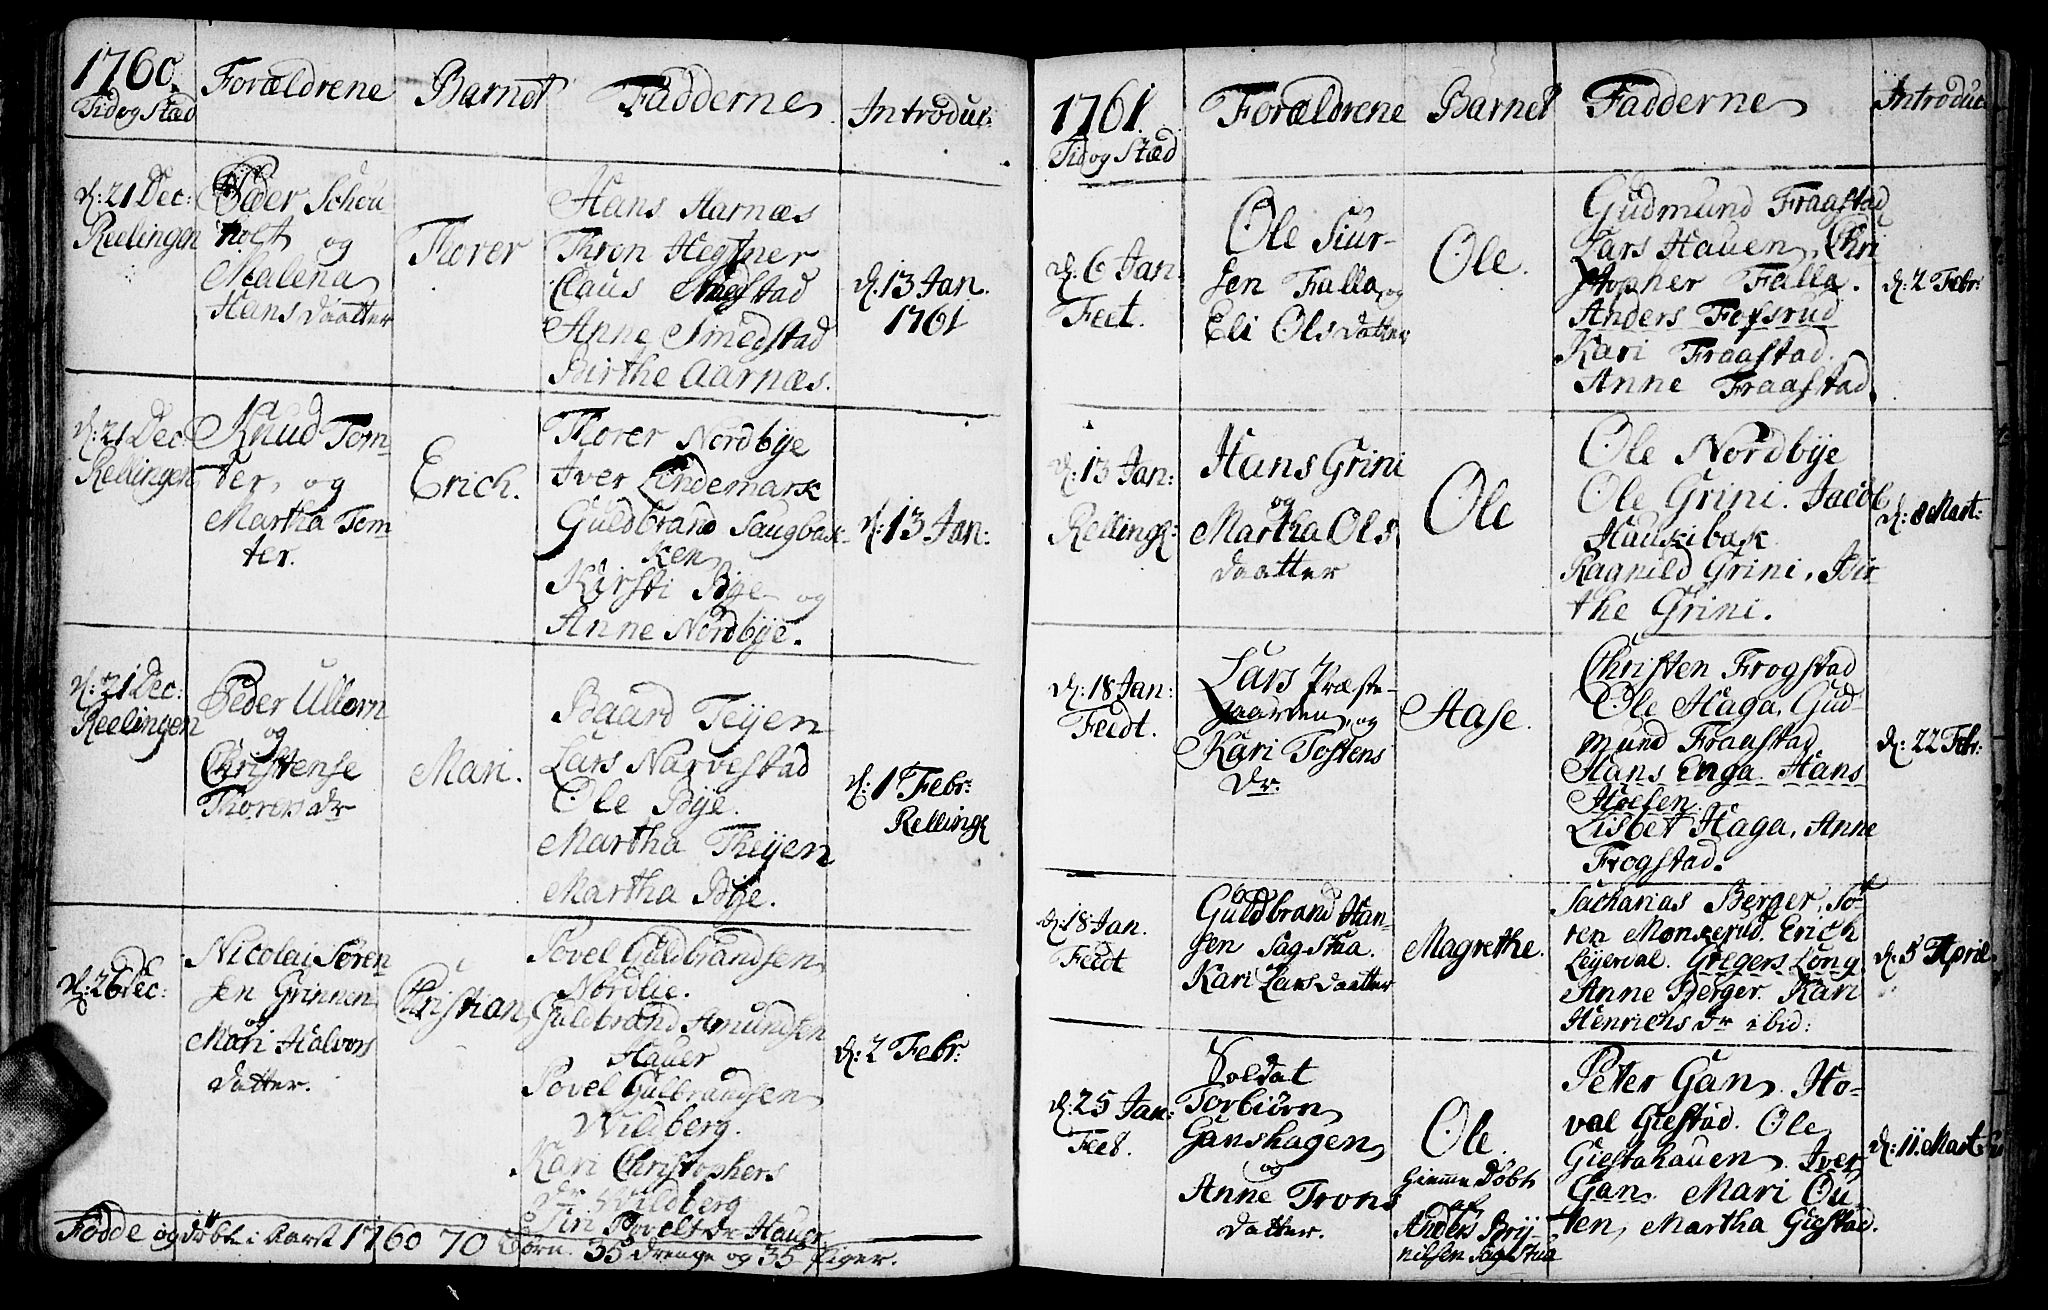 1760.
Tid og Stad
Forældrene
Barnet
Fadderne
Introduc:
d: 21 Dec:
Reelingen
Peder Schou
holt og
Malena
Hans daatter
Thorer
Hans Aarnæs
Thron Hegtner
Claus Smedstad
Anne Smedstad
Birthe Aarnæs.
d. 13 Jan.
1761
d: 21 Dec:
Rellingen
Knud Tom
ter, og
Martha Tom
ter.
Erich.
Thorer Nordbÿe
Iver Lindemark
Guldbrand Haugbak
ken
Kirsti Bÿe og
Anne Nordbÿe.
d: 13 Jan:
d: 21 Dec:
Reelingen
Peder Ullorn
og
Christense
Thorers dr
Mari.
Baard Teÿen
Lars Narvestad
Ole Bÿe.
Martha Theÿen
Martha Bÿe.
d: 1 Febr:
Relling
d: 26 Dec:
Nicolai Søren
sen Grinnen
Mari Halvors
datter.
Christian
Povel Guldbrandsen
Nordlie.
Guldbrand Amundsen
Hauer
Povel Gulbrandsen
Wildberg.
Kari Christophers
dr Wildberg
Siri Povels dr Hauer
d: 2 Febr:
Fødde og døbte i Aaret 1760 70 Børn. 35 drenge og 35 Piger.
1761.
Tid og Stæd
Forældrene
Barnet
Fadderne
Introduc
d: 6 Jan:
Feet.
Ole Siur-
sen Falla, og
Eli Ols datter
Ole.
Gudmund Fraastad
Lars Hauen, Chri
stopher Falla.
Anders Fossrud
Kari Fraastad.
Anne Fraastad.
d: 2 Febr:
d: 13 Jan:
Relling:
Hans Grini
og
Martha Ols
daatter
Ole
Ole Nordbÿe
Ole Grini. Jacob
Haukibak
Ragnild Grini, Bir
the Grini.
d: 8 Mart:
d: 18 Jan:
Feedt.
Lars Præste-
gaarden, og
Kari Tostens
dr.
Aase.
Christen Frogstad
Ole Haga. Gud
mund Fraastad
Hans Enga. Hans
Hoelen.
Lisbet Haga, Anne
Frogstad.
d: 22 Febr:
d: 18 Jan.
Feedt
Guldbrand Han-
sen Sagstua.
Kari Lars daatter
Magrethe.
Sacharias Berger. So-
ren Monserud. Erich
Leÿerdal. Gregers Long
Anne Berger. Kari
Henrichs dr ibid:
d: 5 April.
d: 25 Jan:
Feet.
Soldat
Torbiørn
Ganshagen
og
Anne Trons
datter.
Ole.
Giemme døbt
af
Anders Brÿ-
nilsen Sagstua
Peter Gan. Ho-
val Giestad. Ole
Giestahauen. Iver
Gan. Mari Ou
ten, Martha Giestad.
d: 11. Mart: